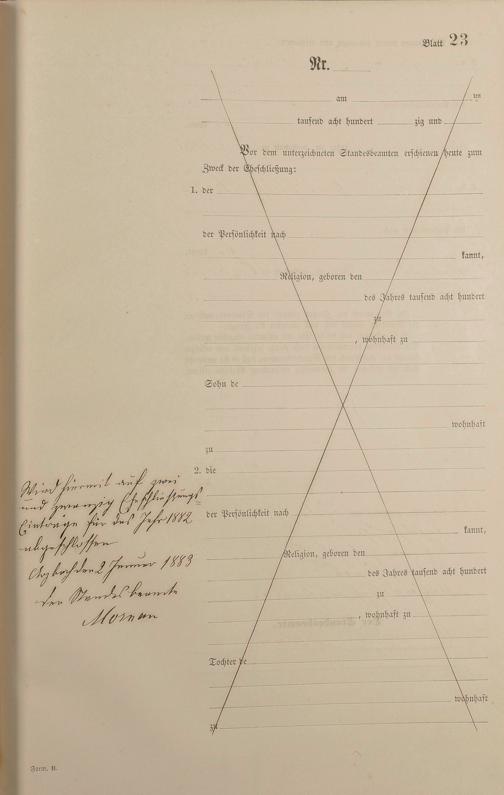 Blatt 23
Nr.
am ten
tausend acht hundert zig und
Vor dem unterzeichneten Standesbeamten erschienen heute zum
Zweck der Eheschließung:
1. der
der Persönlichkeit nach
kannt,
Religion, geboren den
des Jahres tausend acht hundert
zu
, wohnhaft zu
Sohn de
wohnhaft
zu
2. die
der Persönlichkeit nach
kannt,
Religion, geboren den
des Jahres tausend acht hundert
zu
, wohnhaft zu
Tochter de
wohnhaft
zu
Wird hiermit auf zwei
und zwanzig Eheschließungs
Einträge für das Jahr 1882
abgeschlossen
den 2 Januar 1883
der Standesbeamte
Form. B.